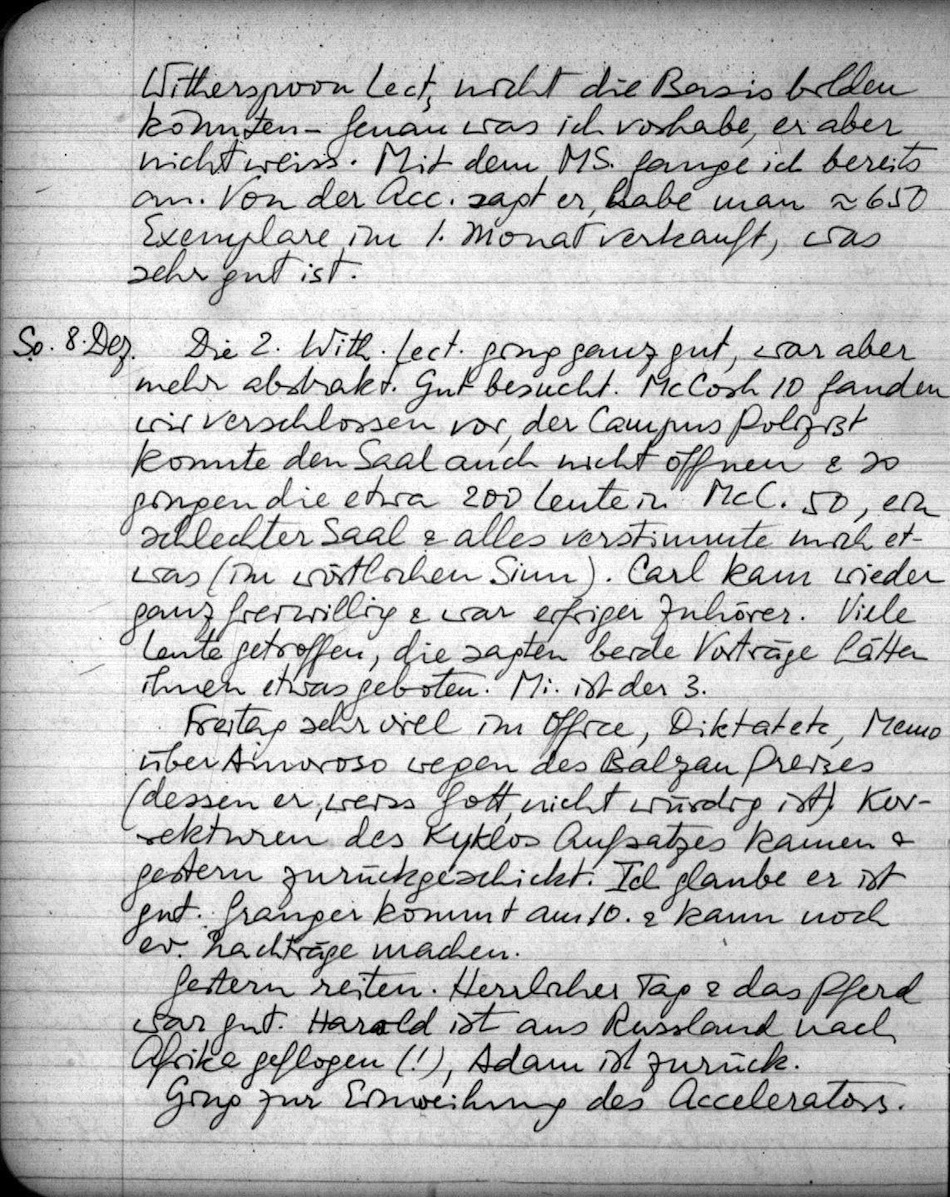 Witherspoon Lect, nicht die Basis bilden
könnten – genau was ich vorhabe, er aber
nicht weiss. Mit dem MS. fange ich bereits
an. Von der Acc. sagt er, habe man ≈ 650
Exemplare im 1. Monat verkauft, was
sehr gut ist.
So. 8. Dez. Die 2. With. Lect. ging ganz gut, war aber
mehr abstrakt. Gut besucht. McCosh 10 fanden
wir verschlossen vor, der Campus Polizist
konnte den Saal auch nicht öffnen & so
gingen die etwa 200 Leute in McC. 50, ein
schlechter Saal & alles verstimmte mich et-
was (im wörtlichen Sinn). Carl kam wieder
ganz freiwillig & war eifriger Zuhörer. Viele
Leute getroffen, die sagten beide Vorträge hätten
ihnen etwas geboten. Mi. ist der 3.
Freitag sehr viel im Office, Diktate etc, Memo
über Amoroso wegen des Balzan Preises
(dessen er, weiss Gott, nicht würdig ist). Kor-
rekturen des Kyklos Aufsatzes kamen &
gestern zurückgeschickt. Ich glaube er ist
gut. Granger kommt am 10. & kann noch
ev. Nachträge machen.
Gestern reiten. Herrlicher Tag & das Pferd
war gut. Harold ist aus Russland nach
Afrika geflogen (!), Adam ist zurück.
Ging zur Einweihung des Accelerators.